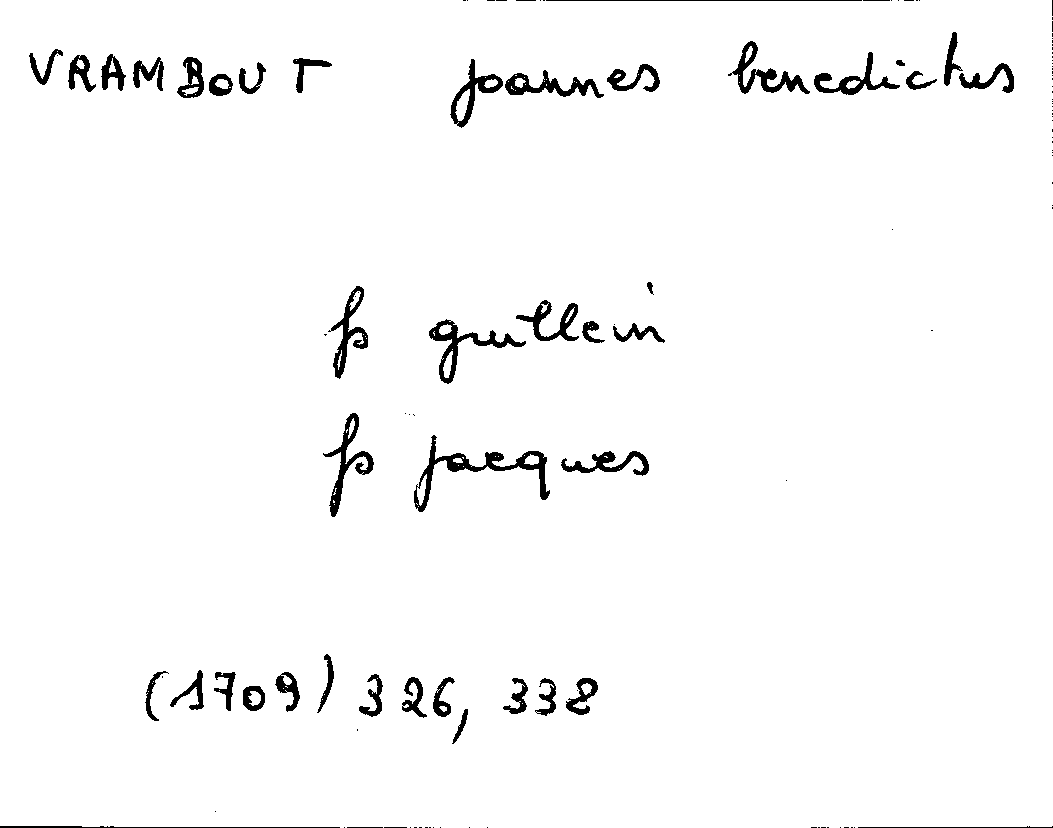 VRAMBOUT joannes benedictus
fs guillein
fs jacques
(1709) 326, 338